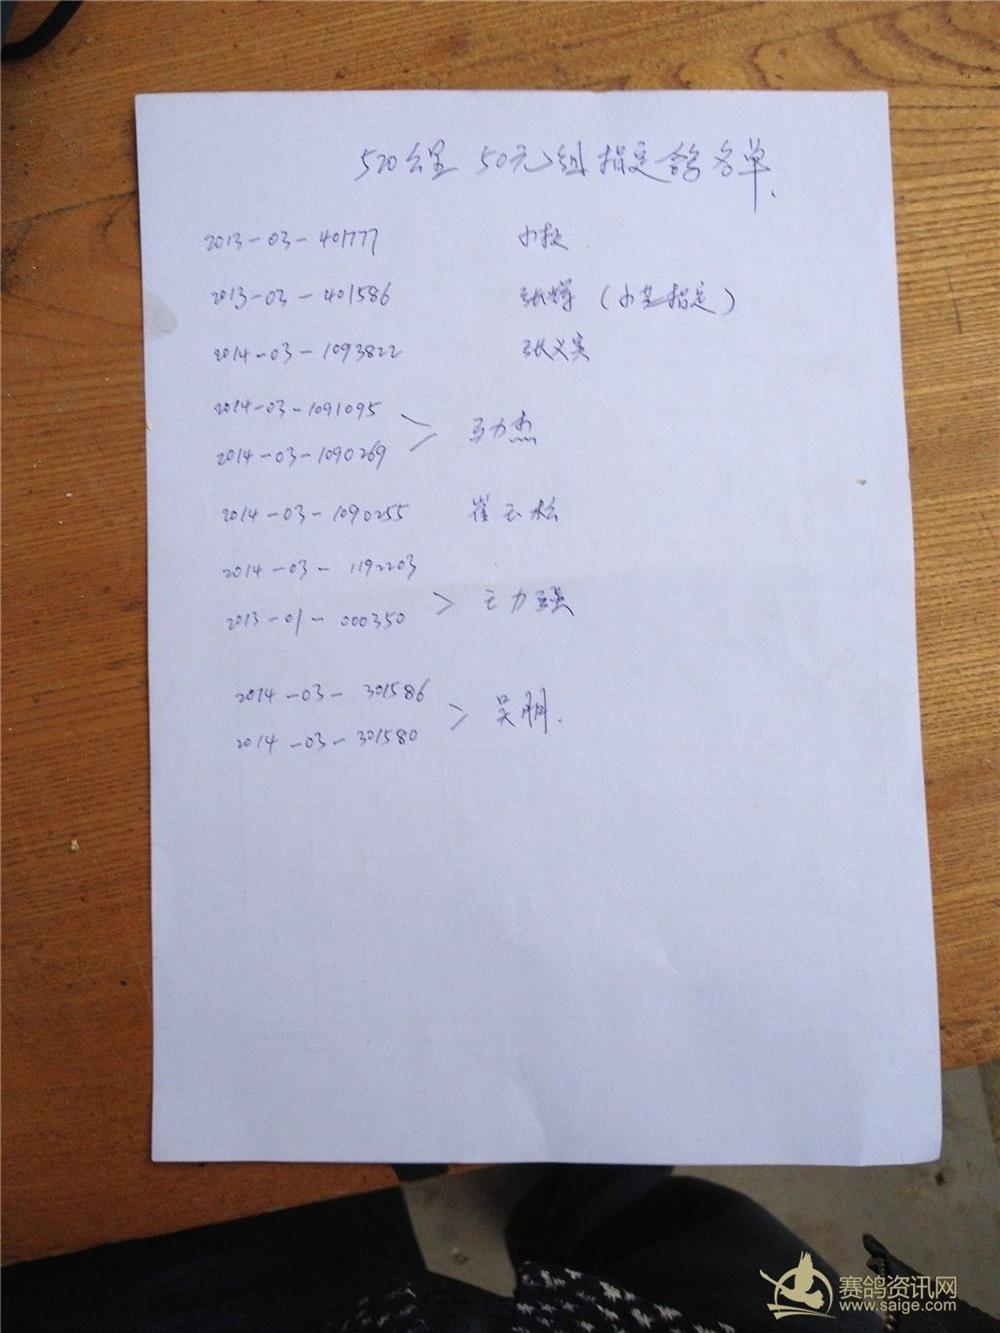 520公里 50元组指定鸽名单.
2013-03-401777
2013-03-401586 张辉 (小艺指定)
2014-03-1093822 张义宾
2014-03-1091095
2014-03-1090269 > 马力杰
2014-03-1090255 崔玉松
2014-03-1192203
2013-01-000350 > 王力强
2014-03-301586
2014-03-301580 > 吴明.
赛鸽资讯网
www.saige.com